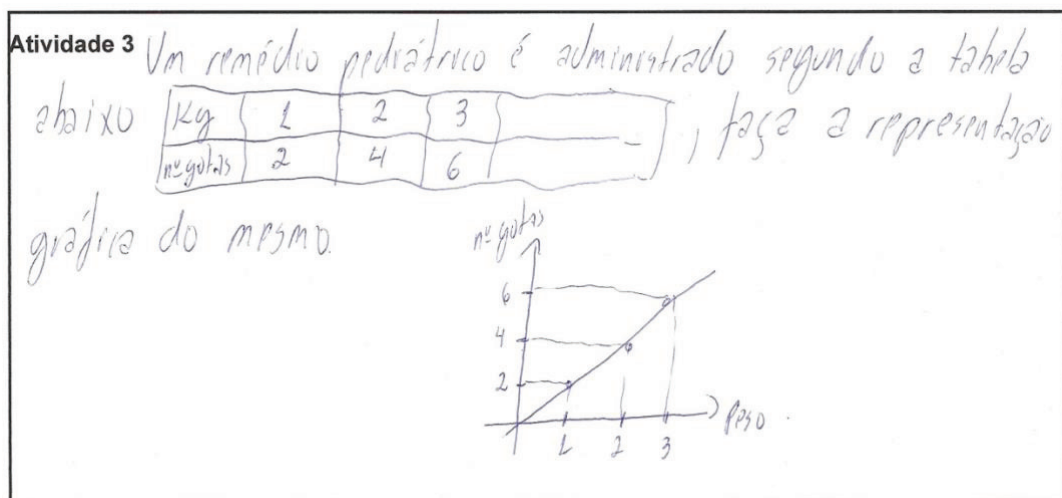 Atividade 3 Um remédio pediátrico é administrado segundo a tabela
abaixo
Kg 1 2 3
nº gotas 2 4 6 -
, faça a representação
gráfica do mesmo.
nº gotas
6
4
2
1 2 3
Peso